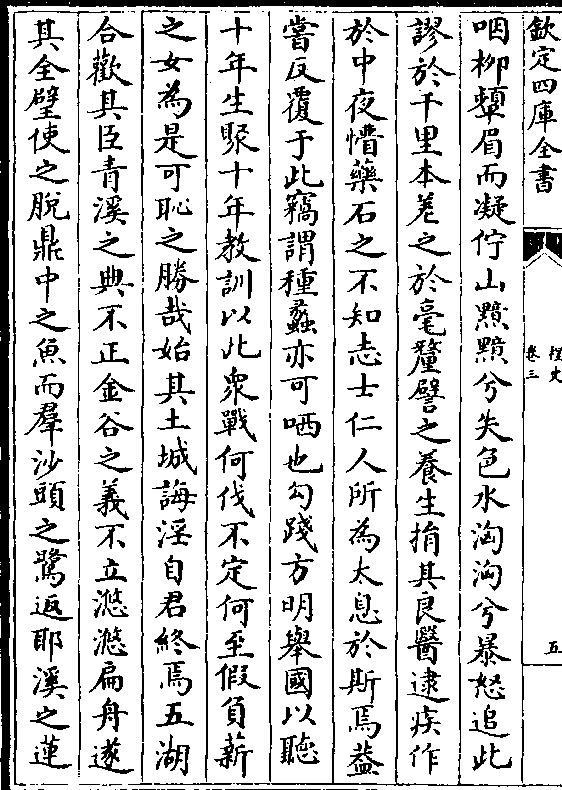 欽定四庫全書
桯史
卷三
五
咽柳顰眉而凝佇山黯黯兮失色水洶洶兮暴怒追此
謬於千里本差之於毫釐譬之養生捐其良醫逮疾作
於中夜懵藥石之不知志士仁人所為太息於斯焉葢
嘗反覆于此竊謂種蠡亦可哂也勾踐方明舉國以聽
十年生聚十年教訓以此衆戰何伐不定何至假負薪
之女為是可恥之勝哉始其土城誨淫自君終焉五湖
合歡其臣青溪之典不正金谷之義不立悠悠扁舟遂
其全璧使之脱鼎中之魚而羣沙頭之鷺返耶溪之蓮